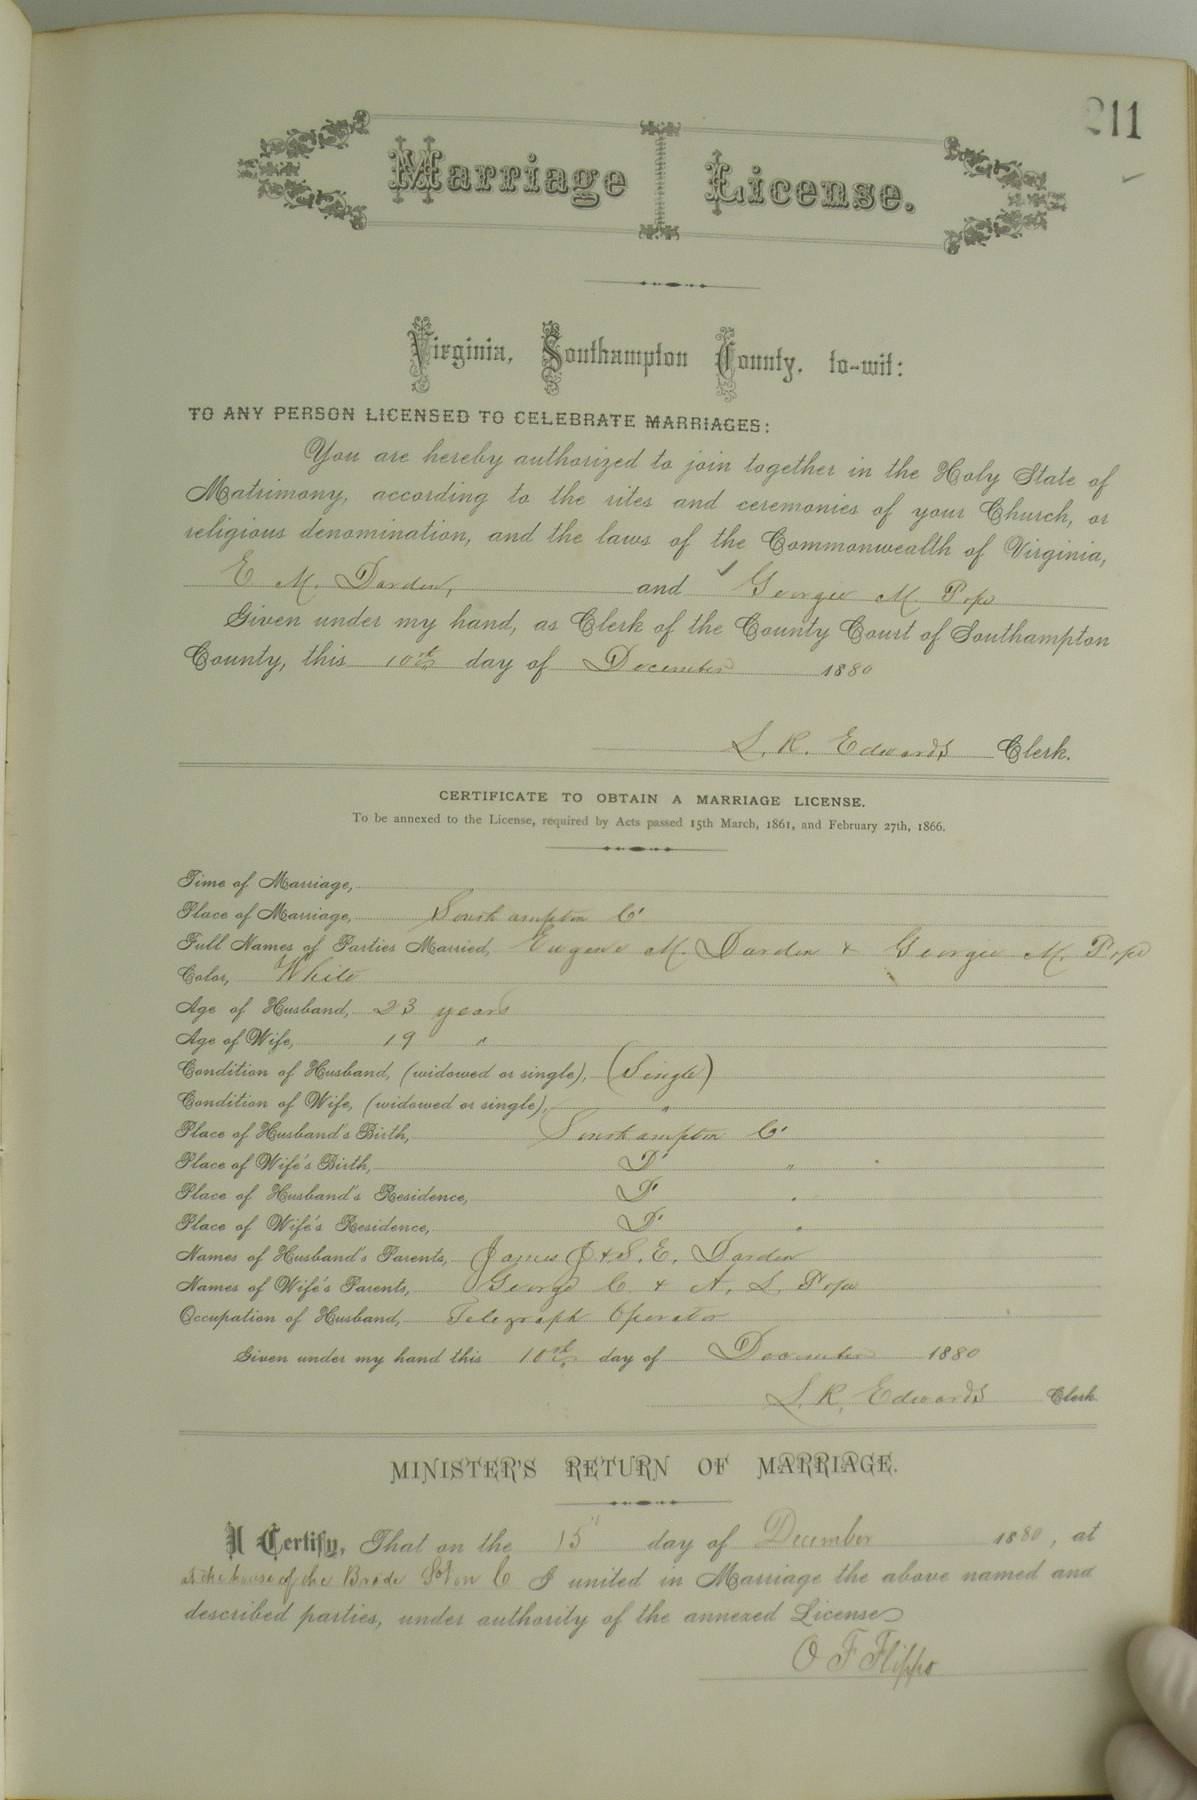 211
Marriage License.
Virginia, Southampton County, to-wit:
TO ANY PERSON LICENSED TO CELEBRATE MARRIAGES:
You are hereby authorized to join together in the Holy State of
Matrimony, according to the rites and ceremonies of your Church, or
religious denomination, and the laws of the Commonwealth of Virginia,
E M. Darden, and Georgie M. Pope
Given under my hand, as Clerk of the County Court of Southampton
County, this 10th day of December 1880
L. R. Edwards Clerk.
CERTIFICATE TO OBTAIN A MARRIAGE LICENSE.
To be annexed to the License, required by Acts passed 15th March, 1861, and February 27th, 1866.
Time of Marriage,
Place of Marriage, Southampton Co
Full Names of Parties Married, Eugene M. Darden & Georgie M. Pope
Color, White
Age of Husband, 23 years
Age of Wife, 19 "
Condition of Husband, (widowed or single), (Single)
Condition of Wife, (widowed or single), "
Place of Husband's Birth, Southampton Co
Place of Wife's Birth, Do "
Place of Husband's Residence, Do "
Place of Wife's Residence, Do "
Names of Husband's Parents, James J & S. E. Darden
Names of Wife's Parents, George C & A. L. Pope
Occupation of Husband, Telegraph Operator
Given under my hand this 10th day of December 1880
L. R. Edwards Clerk
MINISTER'S RETURN OF MARRIAGE.
I Certify, That on the 15" day of December 1880, at
at the house of the Bride Soton Co I united in Marriage the above named and
described parties, under authority of the annexed License
O F Flippo